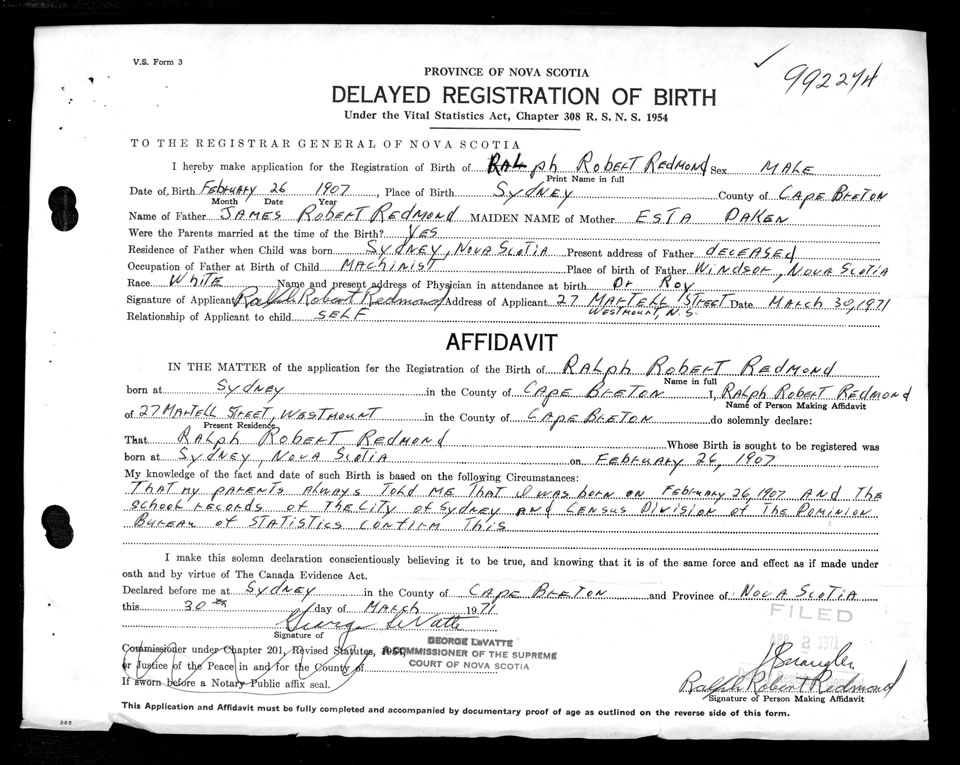 V.S. Form 3
992274
PROVINCE OF NOVA SCOTIA
DELAYED REGISTRATION OF BIRTH
Under the Vital Statistics Act, Chapter 308 R. S. N. S. 1954
TO THE REGISTRAR GENERAL OF NOVA SCOTIA
I hereby make application for the Registration of Birth of Ralph Robert Redmond Sex MALE
Print Name in full
Date of Birth February 26 1907, Place of Birth SYDNEY County of CAPE BRETON
Month Date Year
Name of Father JAMES ROBERT REDMOND MAIDEN NAME of Mother ESTA DAKEN
Were the Parents married at the time of the Birth? YES
Residence of Father when Child was born SYDNEY, NOVA SCOTIA Present address of Father deceased
Occupation of Father at Birth of Child MACHINIST Place of birth of Father WINDSOR, NOVA SCOTIA
Race White Name and present address of Physician in attendance at birth Dr Roy
Signature of Applicant Ralph Robert Redmond Address of Applicant 27 MARTELL STREET Date MARCH 30, 1971
WESTMOUNT, N.S.
Relationship of Applicant to child SELF
AFFIDAVIT
IN THE MATTER of the application for the Registration of the Birth of RALPH ROBERT REDMOND
Name in full
born at SYDNEY in the County of CAPE BRETON I, RALPH ROBERT REDMOND
Name of Person Making Affidavit
of 27 MARTELL STREET, WESTMOUNT in the County of CAPE BRETON do solemnly declare:
Present Residence
That RALPH ROBERT REDMOND Whose Birth is sought to be registered was
born at SYDNEY, NOVA SCOTIA on FEBRUARY 26, 1907
My knowledge of the fact and date of such Birth is based on the following Circumstances:
That my parents always told me that I was born on February 26, 1907 and the
school records of the City of Sydney and Census Division of the Dominion
Bureau of Statistics confirm this
I make this solemn declaration conscientiously believing it to be true, and knowing that it is of the same force and effect as if made under
oath and by virtue of The Canada Evidence Act.
Declared before me at SYDNEY in the County of CAPE BRETON and Province of NOVA SCOTIA
this 30th day of MARCH 1971
FILED
APR 2 1971
George LeVatte
Signature of
GEORGE LeVATTE
Commissioner under Chapter 201, Revised Statutes,
A COMMISSIONER OF THE SUPREME
or Justice of the Peace in and for the County of
COURT OF NOVA SCOTIA
If sworn before a Notary Public affix seal.
Ralph Robert Redmond
Signature of Person Making Affidavit
This Application and Affidavit must be fully completed and accompanied by documentary proof of age as outlined on the reverse side of this form.
385